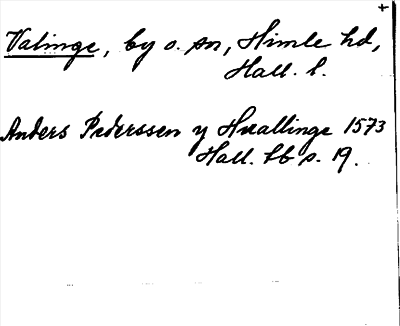 +
Valinge, by o. sn, Himle hd,
Hall. l.
Anders Pederssen y Huallinge 1573
Hall. lb s. 19.